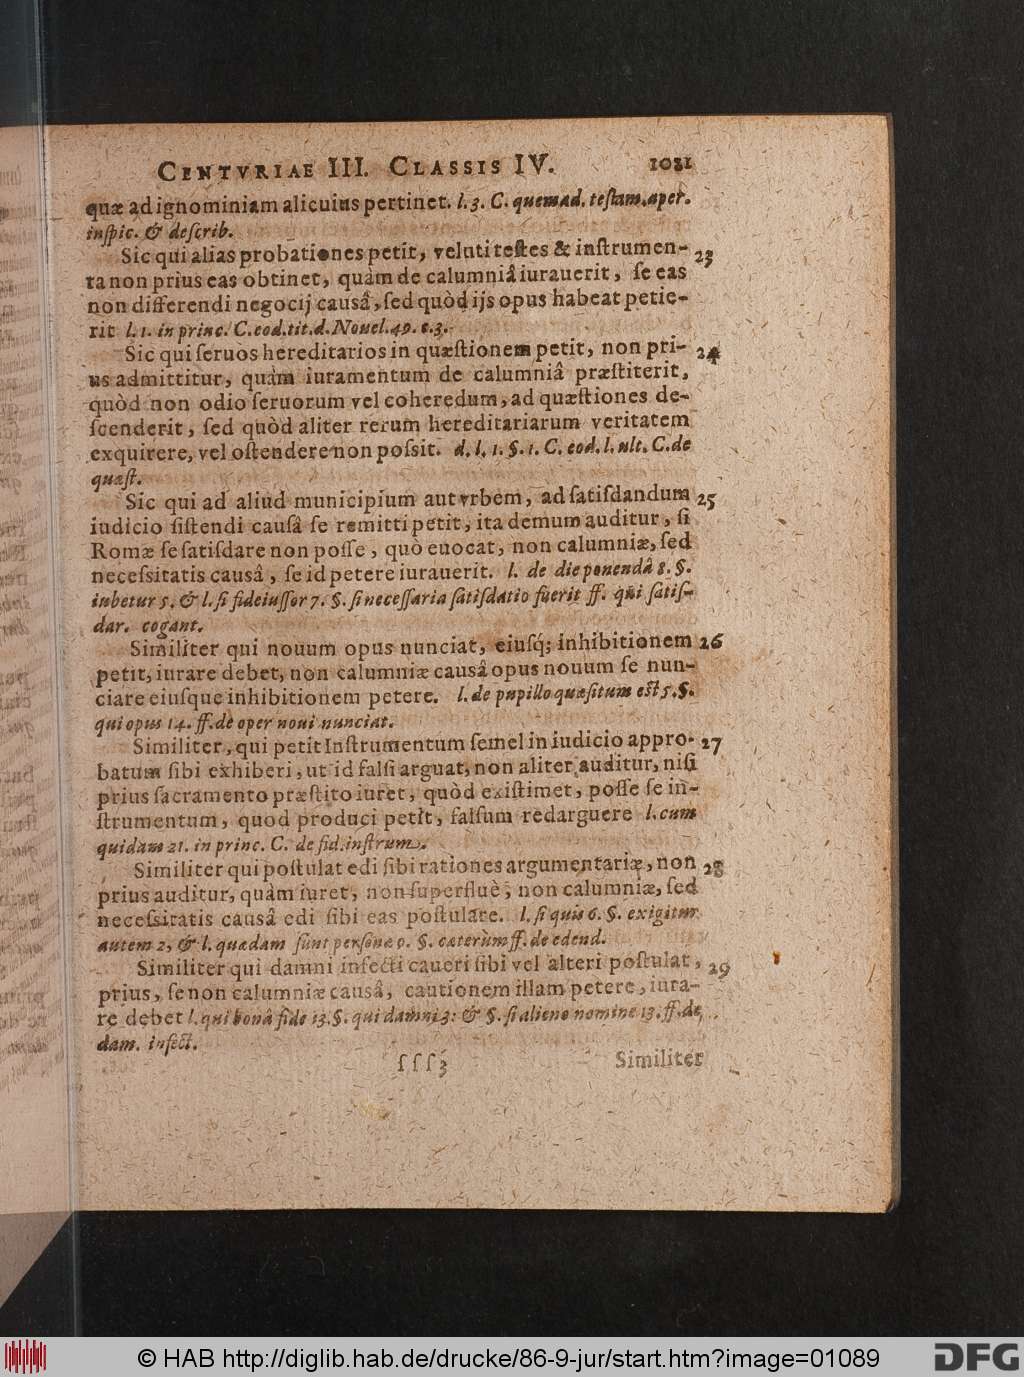 CENTVRIAE III. CLASSIS IV. 1031
quæ ad ignominiam alicuius pertinet. l. 3. C. quemad. testam. aper.
inspic. & describ.
Sic qui alias probationes petit, veluti testes & instrumen- 23
ta non priùs eas obtinet, quàm de calumniâ iurauerit, se eas
non differendi negocij causâ, sed quòd ijs opus habeat petie-
rit l. 1. in princ. C. eod. tit. d. Nouel. 49. c. 3.
Sic qui seruos hereditarios in quæstionem petit, non pri- 24
us admittitur, quàm iuramentum de calumniâ præstiterit,
quòd non odio seruorum vel coheredum, ad quæstiones de-
scenderit, sed quòd aliter rerum hereditariarum veritatem
exquirere, vel ostendere non possit. d. l. 1. §. 1. C. eod. l. ult. C. de
quæst.
Sic qui ad aliud municipium aut vrbem, ad satisdandum 25
iudicio sistendi causâ se remitti petit, ita demum auditur, si
Romæ se satisdare non posse, quò euocat, non calumniæ, sed
necessitatis causâ, se id petere iurauerit. l. de die ponendâ 8. §.
iubetur 5. & l. si fideiussor 7. §. si necessaria satisdatio fuerit ff. qui satis-
dar. cogant.
Similiter qui nouum opus nunciat, eiusq́; inhibitionem 26
petit, iurare debet, non calumniæ causâ opus nouum se nun-
ciare eiusque inhibitionem petere. l. de pupillo quæsitum est 5. §.
qui opus 14. ff. de oper noui nunciat.
Similiter, qui petit Instrumentum semel in iudicio appro- 27
batum sibi exhiberi, ut id falsi arguat, non aliter auditur, nisi
prius sacramento præstito iuret, quòd existimet, posse se in-
strumentum, quod produci petit, falsum redarguere l. cum
quidam 21. in princ. C. de fid. instrum.
Similiter qui postulat edi sibi rationes argumentariæ, non 28
prius auditur, quàm iuret, non superfluè, non calumniæ, sed
necessitatis causâ edi sibi eas postulare. l. si quis 6. §. exigitur
autem 2, & l. quædam sunt personæ 9. §. cæterùm ff. de edend.
Similiter qui damni infecti caueri sibi vel alteri postulat, 29
prius, se non calumniæ causâ, cautionem illam petere, iura-
re debet l. qui bonâ fide 13. §. qui damni 3: & §. si alieno nomine 13. ff. de
dam. infect.
ssss 3 Similiter
© HAB http://diglib.hab.de/drucke/86-9-jur/start.htm?image=01089
DFG